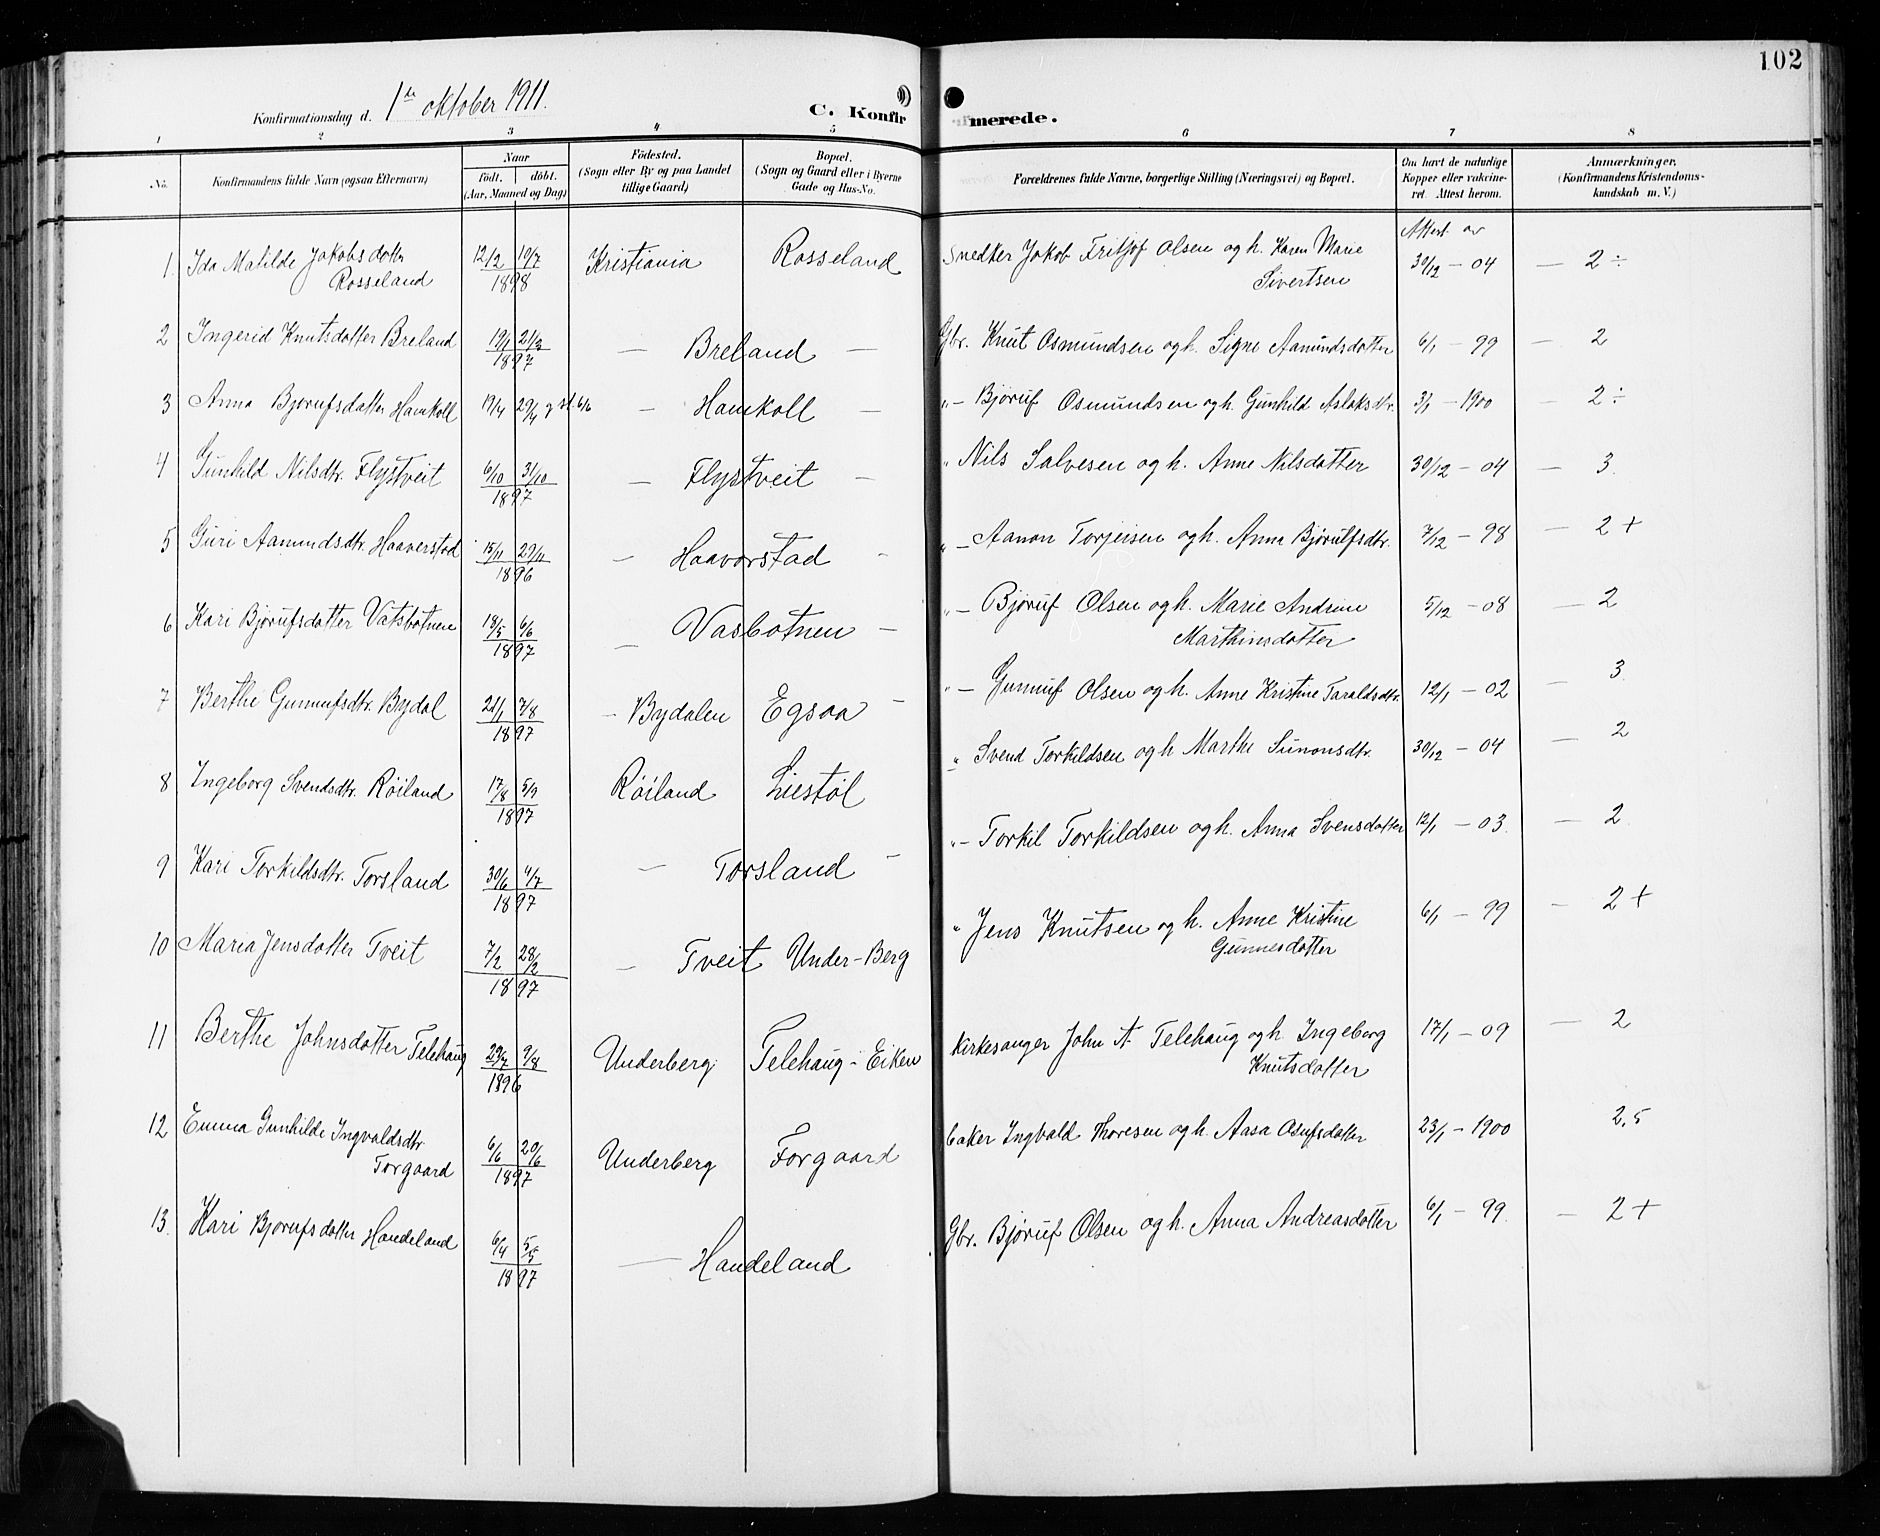 102
Konfirmationsdag d. 1ste oktober 1911.
C. Konfirmerede.
1 2 3 4 5 6 7 8
No.
Konfirmandens fulde Navn (ogsaa Efternavn)
Naar
født. døbt.
(Aar, Maaned og Dag)
Fødested.
(Sogn eller By og paa Landet
tillige Gaard)
Bopæl.
(Sogn og Gaard eller i Byerne
Gade og Hus-No.
Forældrenes fulde Navne, borgerlige Stilling (Næringsvei) og Bopæl.
Om havt de naturlige
Kopper eller vakcine-
ret. Attest herom.
Anmærkninger.
(Konfirmandens Kristendoms-
kundskab m. V.)
Attest av
1. Ida Matilde Jakobsdotter 12/2 10/7 Kristiania Rosseland Snedker Jakob Fritjof Olsen og h. Karen Marie 30/12 — 04 — 2 ÷
Rosseland 1898 Sivertsen
2 Ingerid Knutsdotter Breland 19/1 21/3 — Breland — Gbr. Knut Osmundsen og h. Signe Aamundsdotter 6/1 — 99 — 2
1897
3 Anna Bjorufsdatter Hamkoll 17/4 29/4 6/6 — Hamkoll — " — Bjøruf Osmundsen og h. Gunhild Aslaksdtr. 3/1 — 1900 — 2 ÷
4 Gunhild Nilsdtr. Flystveit 6/10 31/10 — Flystveit — " Nils Salvesen og h. Anne Nilsdotter 30/12 — 04 — 3.
1897
5 Guri Aamundsdtr. Haaverstad 15/11 29/11 — Haavorstad - " — Aanon Torjeisen og h. Anna Bjørulfsdtr. 7/12 — 98 — 2 +
1896
6 Kari Bjørufsdotter Vatsbotnen 18/5 6/6 — Vasbotnen — " — Bjøruf Olsen og h. Marie Andrine 5/12 — 08 — 2
1897 Marthinsdotter
7 Berthe Gunnufsdtr. Bydal 21/1 7/8 — Bydalen Egsaa — " — Gunnuf Olsen og h. Anne Kristine Taraldsdtr. 12/1 — 02 — 3.
1897
8 Ingeborg Svendsdtr. Røiland 17/8 5/9 Røiland Liestøl " Svend Torkildsen og h Marthe Simonsdtr. 30/12 — 04 — 2
1897
9 Kari Torkildsdtr. Torsland 30/6 4/7 — Torsland — " — Torkil Torkildsen og h. Anna Svensdotter 12/1 — 03. — 2.
1897
10 Maria Jensdotter Tveit 7/2 28/2 — Tveit Under-Berg " Jens Knutsen og h. Anne Kristine 6/1 — 99 — 2 +
1897 Gunnesdotter
11 Berthe Johnsdotter Telehaug 29/7 9/8 Underberg Telehaug - Eiken Kirkesanger John A. Telehaug og h Ingeborg 17/1 — 09 — 2
1896 Knutsdotter
12 Emma Gunhilde Ingvaldsdtr. 6/6 20/6 Underberg Forgaard baker Ingvald Thoresen og h. Aasa Osufsdotter 23/1 — 1900 2,5
Forgaard 1897
13. Kari Bjorufsdotter Handeland 6/4 5/5 — Handeland Gbr. Bjøruf Olsen og h. Anna Andreasdotter 6/1 — 99. — 2 +
1897